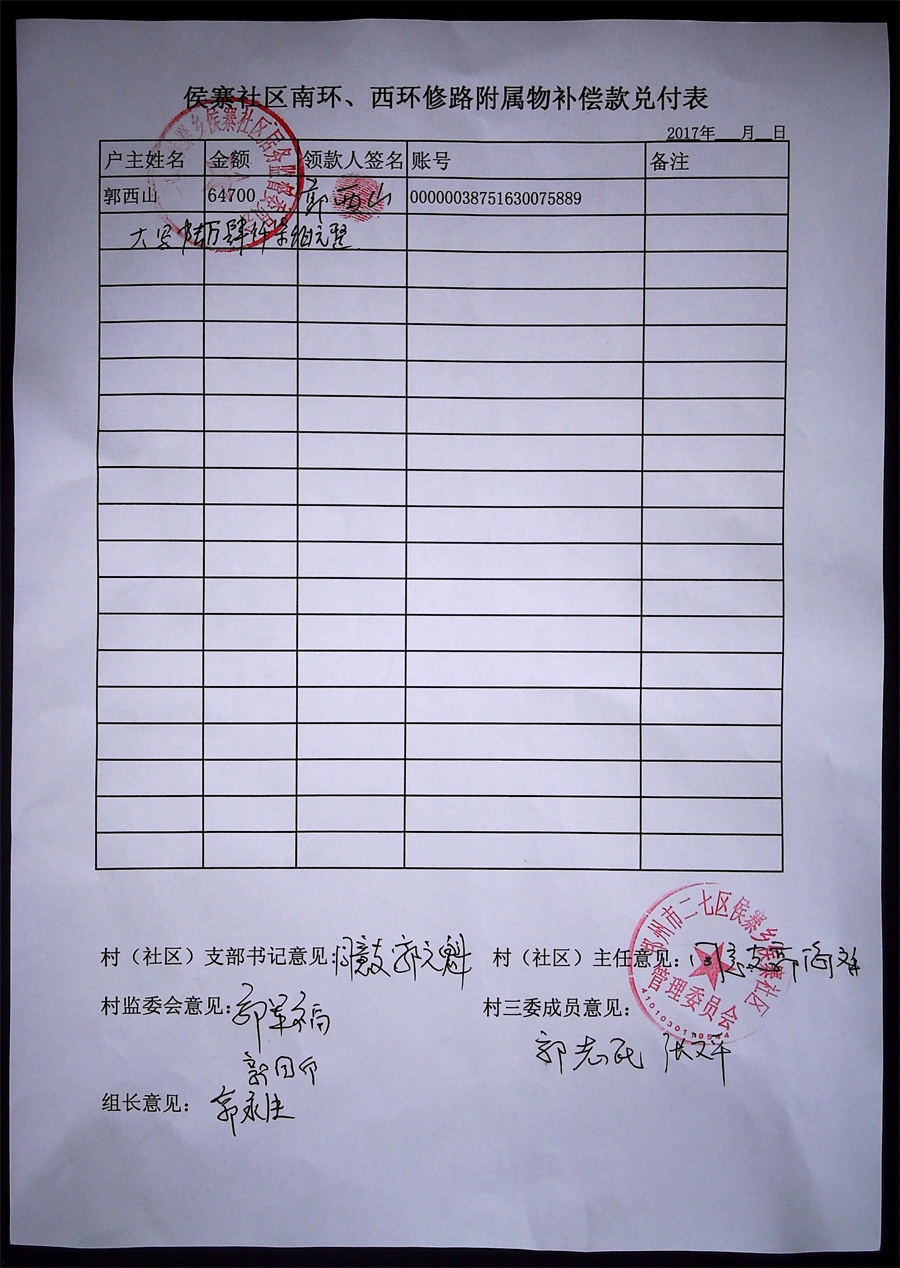 侯寨社区南环、西环修路附属物补偿款兑付表
2017年 月 日
户主姓名 金额 领款人签名 账号 备注
郭西山 64700 郭西山 00000038751630075889
大写陆万肆仟柒佰元整
侯寨乡侯寨社区居务监督委员会
村（社区）支部书记意见：同意支 郭元魁
村（社区）主任意见：同意支
郑州市二七区侯寨乡侯寨社区
管理委员会
村监委会意见：
村三委成员意见：
郭志民
组长意见：